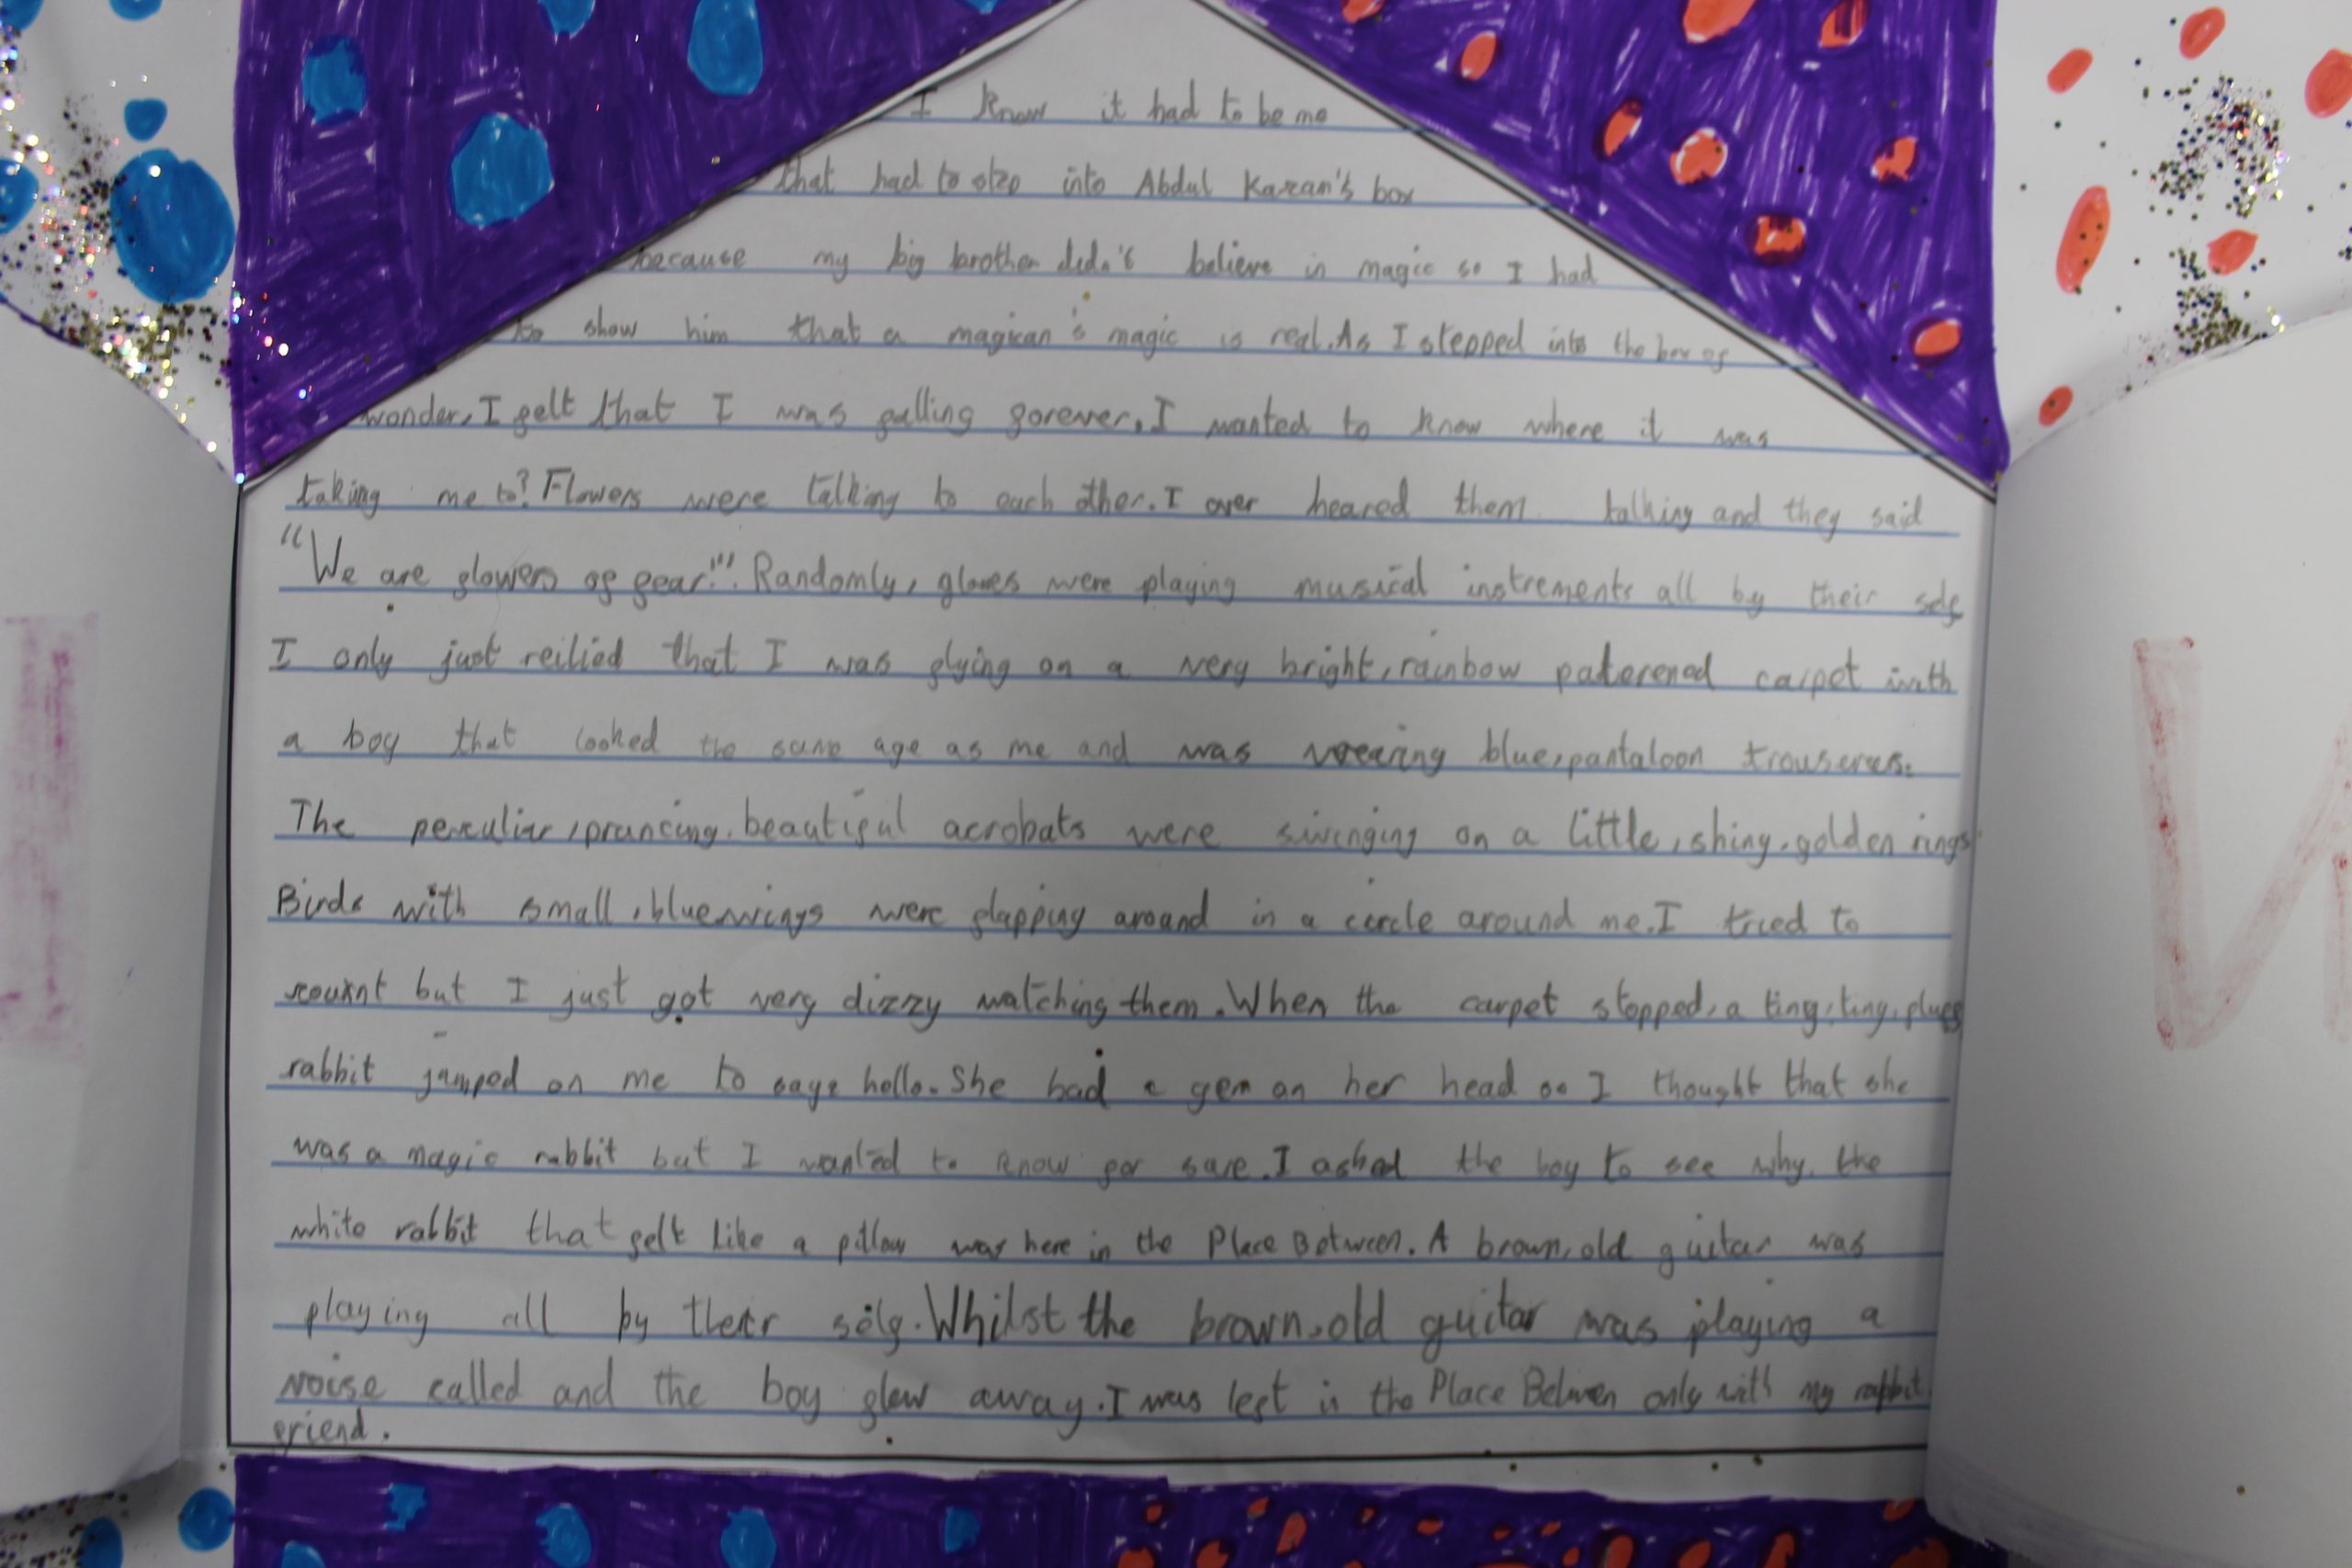 I know it had to be me
that had to step into Abdul Kazan's box
because my big brother didn't believe in magic so I had
to show him that a magican's magic is real. As I stepped into the box of
wonder, I felt that I was falling forever. I wanted to know where it was
taking me to? Flowers were talking to each other. I over heared them talking and they said
"We are flowers of fear!". Randomly, gloves were playing musical instrements all by their self
I only just reilied that I was flying on a very bright, rainbow paterened carpet with
a boy that looked the same age as me and was wearing blue, pantaloon trouserers.
The perculiar, prancing, beautiful acrobats were swinging on a little, shing, golden rings
Birds with small, blue wings were flapping around in a circle around me. I tried to
count but I just got very dizzy watching them. When the carpet stopped, a tiny, tiny, pluff
rabbit jumped on me to saye hello. She had a gem on her head so I thought that she
was a magic rabbit but I wanted to know for sure. I asked the boy to see why the
white rabbit that felt like a pillow was here in the Place Between. A brown, old guitar was
playing all by their self. Whilst the brown, old guitar was playing a
noise called and the boy flew away. I was left in the Place Between only with my rabbit
friend.